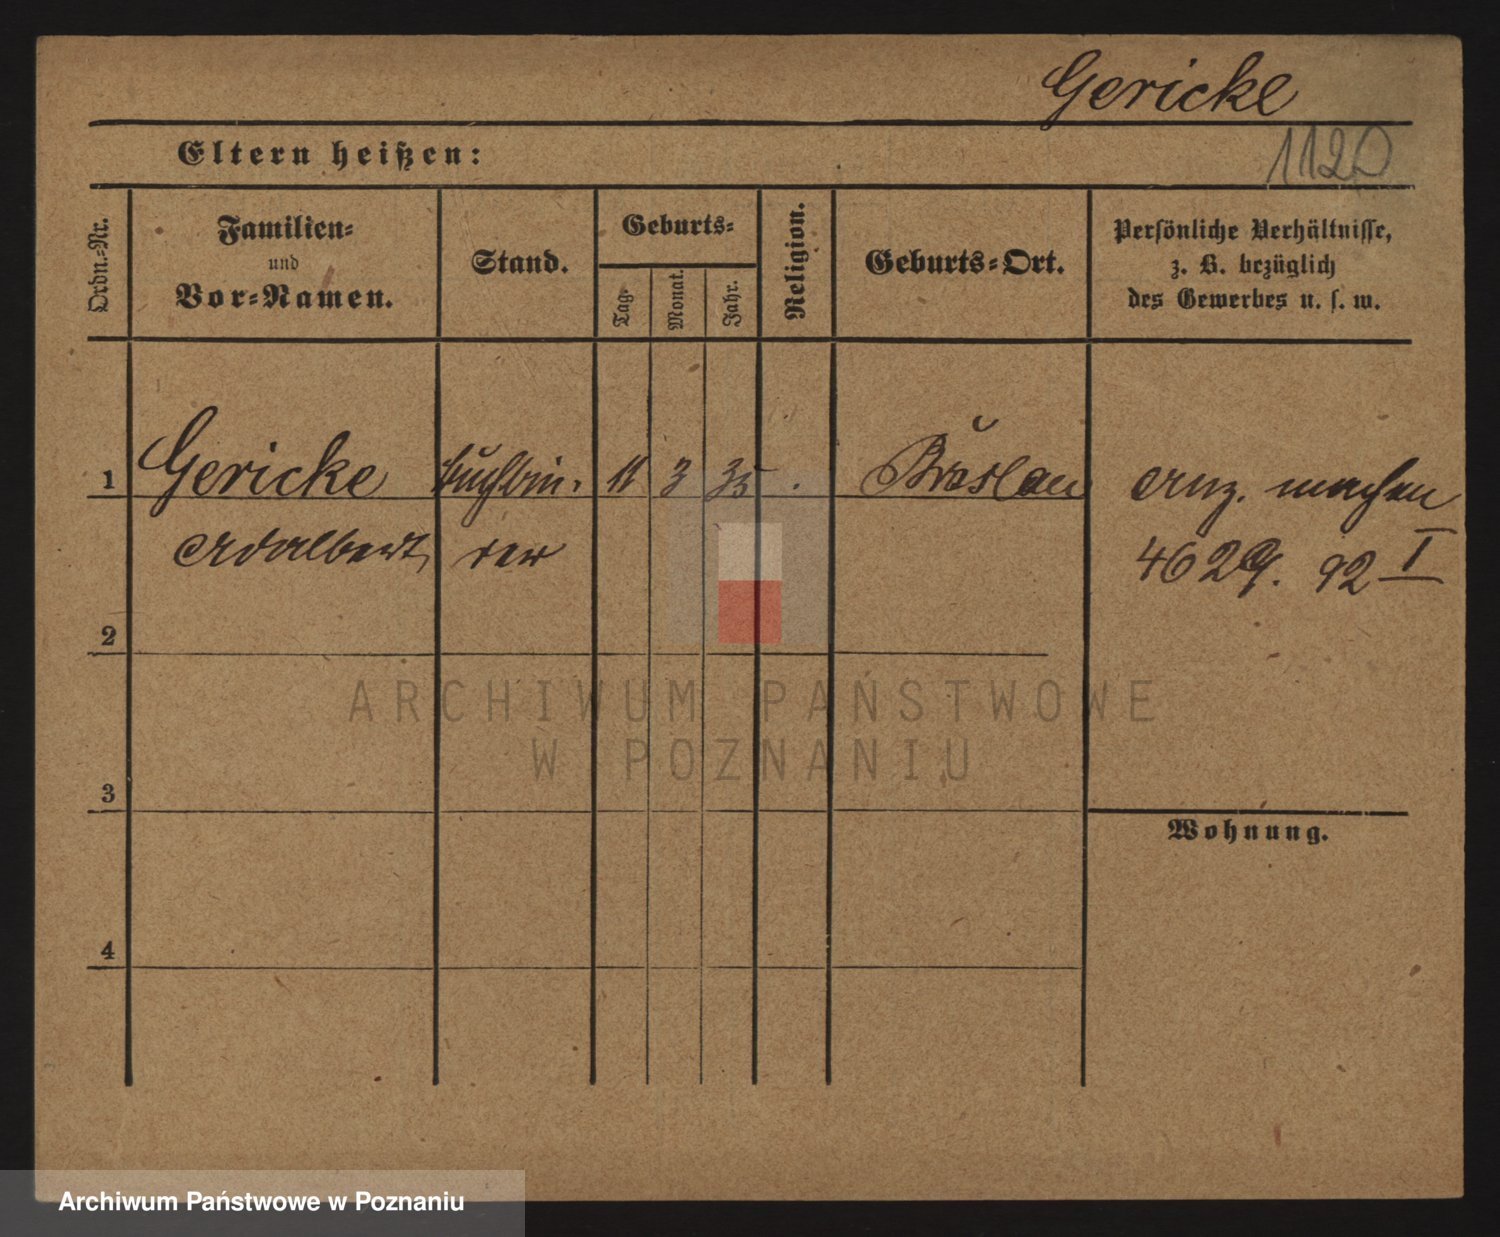 Gericke
1120
Eltern heißen:
Ordn.-Nr.
Familien-
und
Vor-Namen.
Stand.
Geburts-
Tag.
Monat.
Jahr.
Religion.
Geburts-Ort.
Persönliche Verhältnisse,
z. B. bezüglich
des Gewerbes u. s. w.
1 Gericke Buchbin- 11 3 35 Breslau Anz. machen
Adalbert der 92 I
2
3
Wohnung.
4
ARCHIWUM PAŃSTWOWE
W POZNANIU
Archiwum Państwowe w Poznaniu